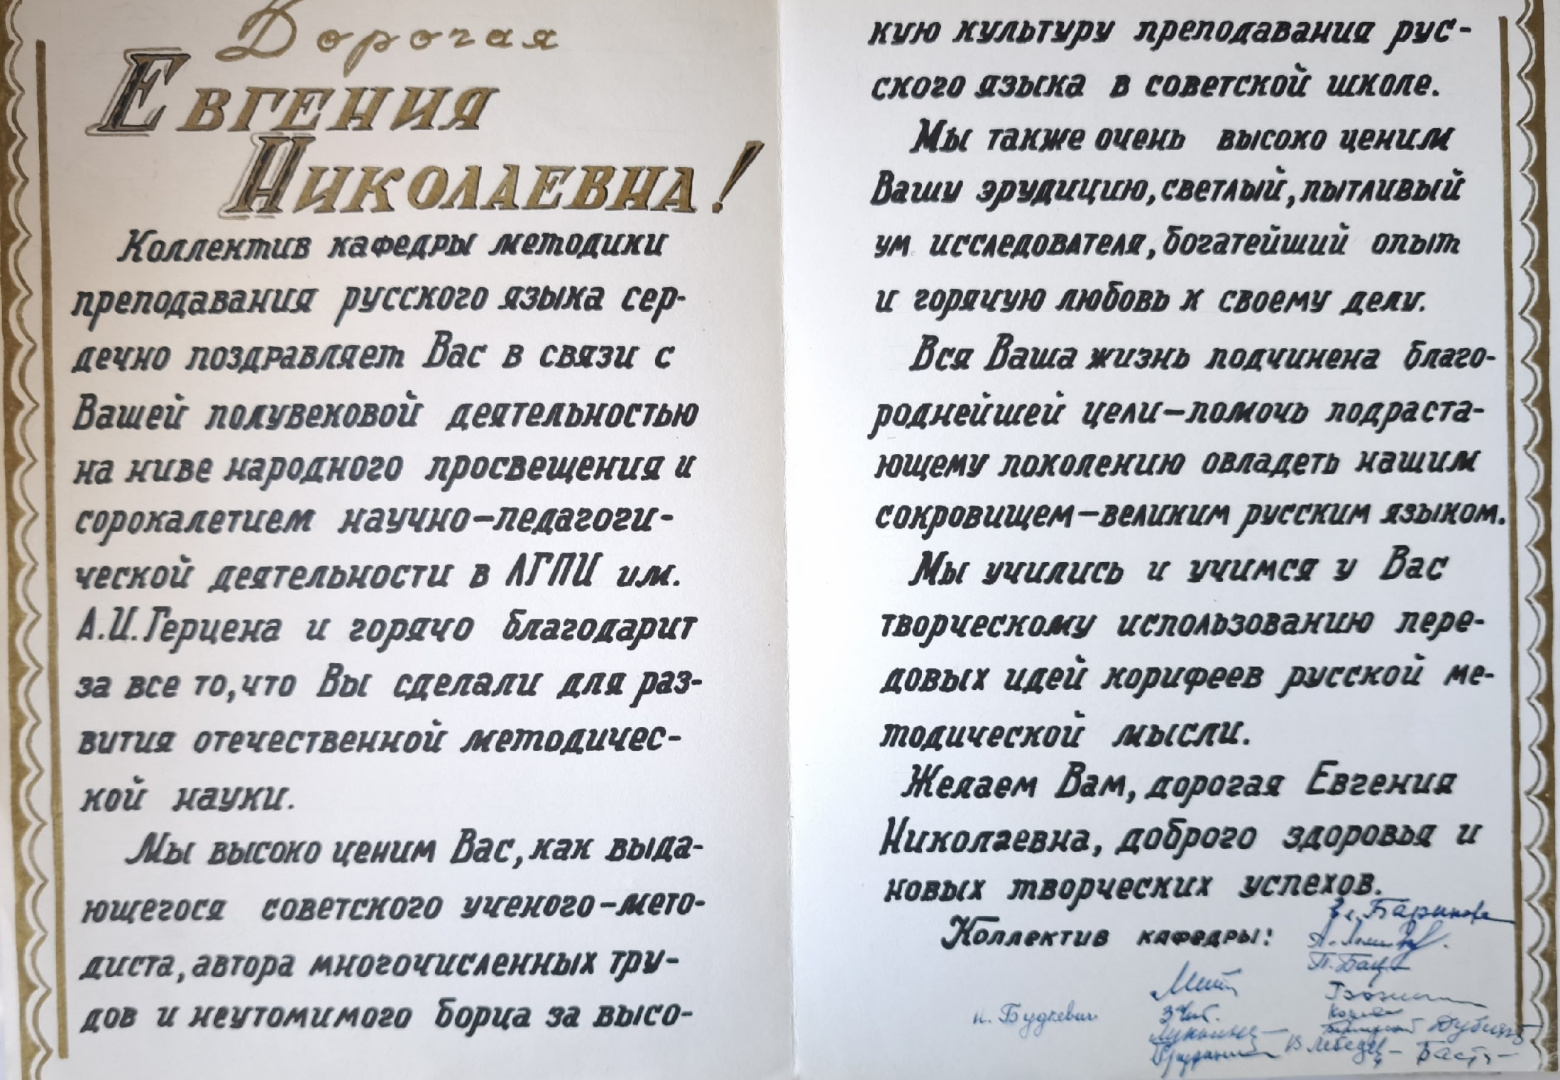 Дорогая
Евгения
Николаевна!
Коллектив кафедры методики
преподавания русского языка сер-
дечно поздравляет Вас в связи с
Вашей полувековой деятельностью
на ниве народного просвещения и
сорокалетием научно-педагоги-
ческой деятельности в ЛГПИ им.
А.И.Герцена и горячо благодарит
за все то, что Вы сделали для раз-
вития отечественной методичес-
кой науки.
Мы высоко ценим Вас, как выда-
ющегося советского ученого-мето-
диста, автора многочисленных тру-
дов и неутомимого борца за высо-
кую культуру преподавания рус-
ского языка в советской школе.
Мы также очень высоко ценим
Вашу эрудицию, светлый, пытливый
ум исследователя, богатейший опыт
и горячую любовь к своему делу.
Вся Ваша жизнь подчинена благо-
роднейшей цели-помочь подраста-
ющему поколению овладеть нашим
сокровищем-великим русским языком.
Мы учились и учимся у Вас
творческому использованию пере-
довых идей корифеев русской ме-
тодической мысли.
Желаем Вам, дорогая Евгения
Николаевна, доброго здоровья и
новых творческих успехов.
Коллектив кафедры:
Баринова
н. Будкевич